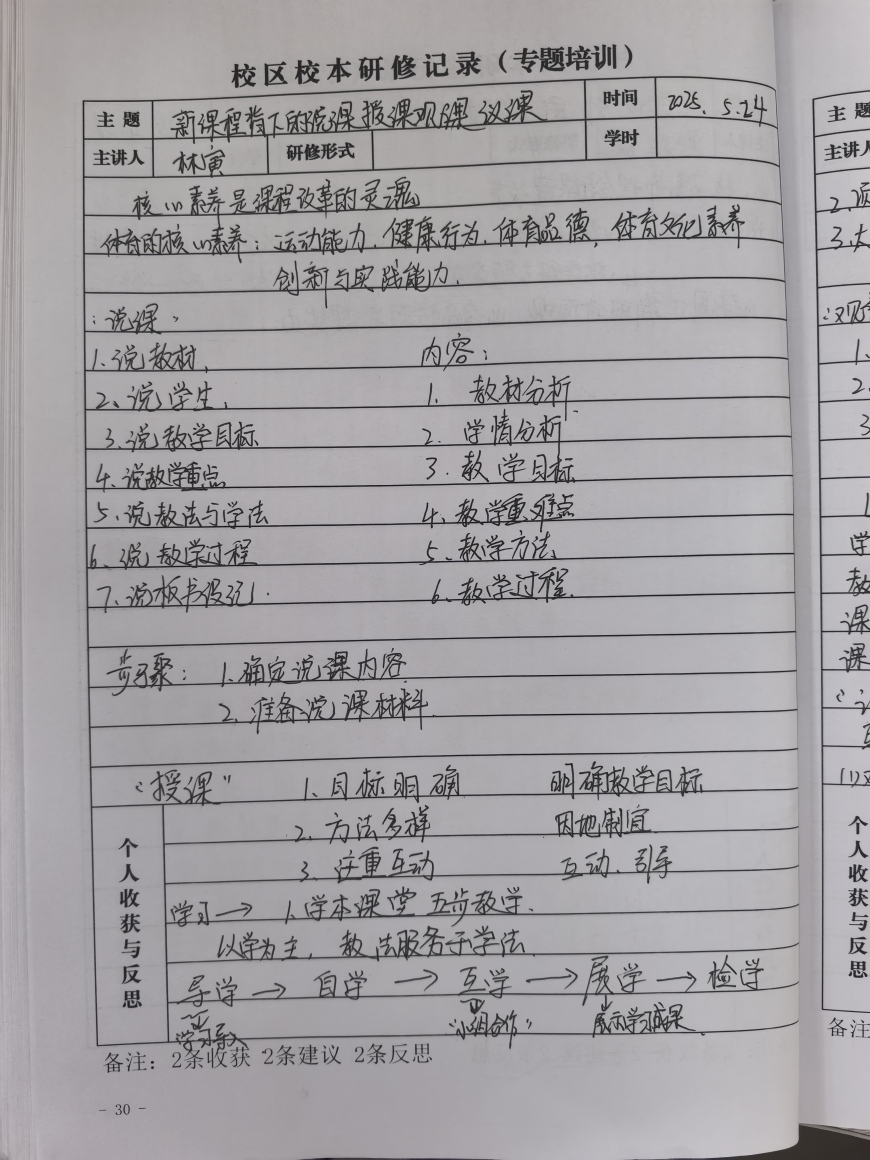 校区校本研修记录（专题培训）
主题 新课程背下的说课授课观课议课 时间 2025. 5.24
主讲人 林寅 研修形式 学时
核心素养是课程改革的灵魂
体育的核心素养：运动能力、健康行为、体育品德、体育文化素养
创新与实践能力.
：说课、
1.说教材， 内容：
2、说学生， 1. 教材分析
3.说教学目标 2. 学情分析
4.说教学重点 3.教学目标
5.说教法与学法 4、教学重难点
6、说教学过程 5、教学方法
7.说板书设计. 6、教学过程.
步骤： 1.确定说课内容
2、准备说课材料
“授课” 1、目标明确 明确教学目标
2、方法多样 因地制宜
3、注重互动 互动、引导
个人收获与反思
学习→ 1.学本课堂 五步教学.
以学为主，教法服务于学法
导学→ 自学 → 互学 → 展学 → 检学
学习导入 “小组合作” 展示学习成果
备注：2条收获 2条建议 2条反思
- 30 -
主题
主讲人
3.大
1.
2.
3
学
教
课
课
(1)
个人收获与反思
备注